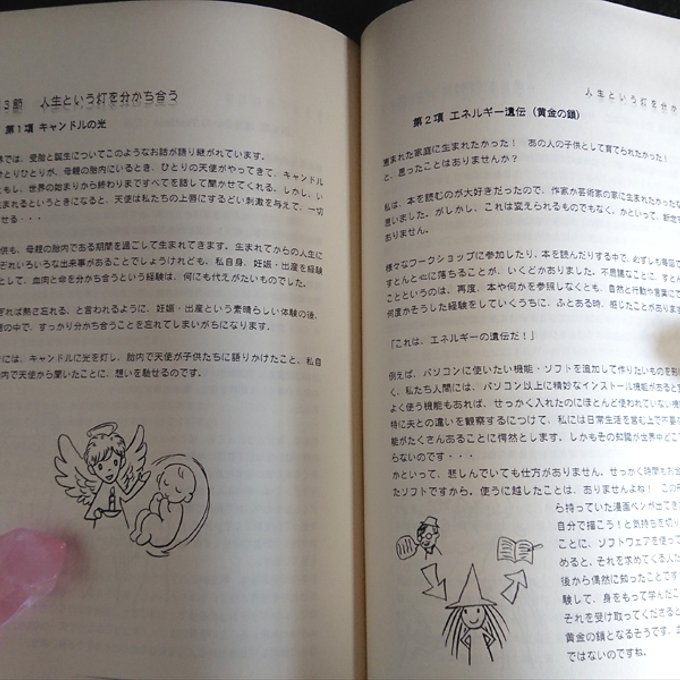 3節 人生という灯を分かち合う
第1項 キャンドルの光
では、受胎と誕生についてこのようなお話が語り継がれています。
ひとりひとりが、母親の胎内にいるとき、ひとりの天使がやってきて、キャンドル
ともし、世界の始まりから終わりまですべてを話して聞かせてくれる。しかし、い
生まれるというときになると、天使は私たちの上唇にするどい刺激を与えて、一切
せる・・・
供も、母親の胎内である期間を過ごして生まれてきます。生まれてからの人生に
ぞれいろいろな出来事があることでしょうけれども、私自身、妊娠・出産を経験
として、血肉と命を分かち合うという経験は、何にも代えがたいものでした。
ぎれば熱さ忘れる、と言われるように、妊娠・出産という素晴らしい体験の後、
の中で、すっかり分かち合うことを忘れてしまいがちになります。
には、キャンドルに光を灯し、胎内で天使が子供たちに語りかけたこと、私自
内で天使から聞いたことに、想いを馳せるのです。
人生という灯を分か
第2項 エネルギー遺伝（黄金の鎖）
恵まれた家庭に生まれたかった！ あの人の子供として育てられたかった！
と、思ったことはありませんか？
私は、本を読むのが大好きだったので、作家か芸術家の家に生まれたかったな
思いました。がしかし、これは変えられるものでもなく、かといって、断念す
ありません。
様々なワークショップに参加したり、本を読んだりする中で、必ずしも毎回で
すとんと心に落ちることが、いくどかありました。不思議なことに、すとん
ことというのは、再度、本や何かを参照しなくとも、自然と行動や言葉にで
何度かそうした経験をしていくうちに、ふとある時、感じたことがあります
「これは、エネルギーの遺伝だ！」
例えば、パソコンに使いたい機能・ソフトを追加して作りたいものを形
く、私たち人間には、パソコン以上に精妙なインストール機能があると
よく使う機能もあれば、せっかく入れたのにほとんど使われていない機
特に夫との違いを観察するにつけて、私には日常生活を営む上で不要な
能がたくさんあることに愕然とします。しかもその知識が世界中どこ
らないのです・・・
かといって、悲しんでいても仕方がありません。せっかく時間もお金
たソフトですから。使うに越したことは、ありませんよね！ この
ら持っていた漫画ペンが出てき
自分で描こう！と気持ちを切り
ことに、ソフトウェアを使って
めると、それを求めてくる人た
後から偶然に知ったことです
験して、身をもって学んだこ
それを受け取ってくださると
黄金の鎖となるそうです。
ではないのですね。